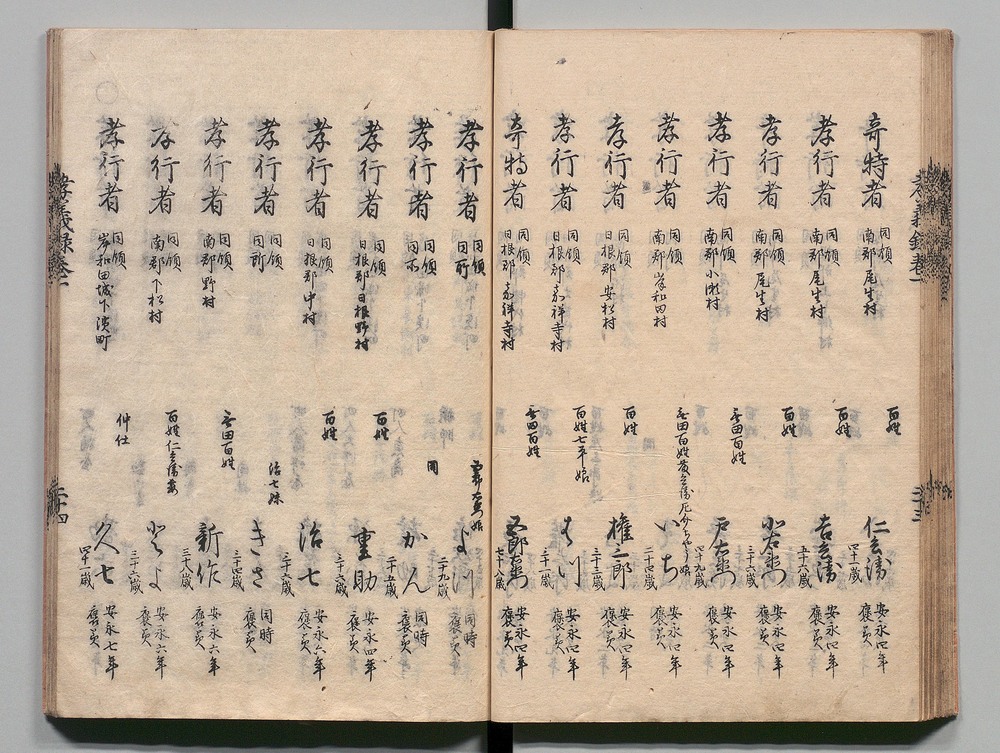 孝義録巻一
奇特者 同領 南郡尾生村 百姓 仁兵衛 四十一歳 安永四年 褒美
孝行者 同領 南郡尾生村 百姓 吉兵衛 五十六歳 安永四年 褒美
孝行者 同領 南郡尾生村 百姓 三十六歳 安永四年 褒美
孝行者 同領 南郡小瀬村 無田百姓 戸右衛門 四十九歳 安永四年 褒美
孝行者 同領 南郡岸和田村 無田百姓 いち 二十四歳 安永四年 褒美
孝行者 同領 日根郡安松村 百姓 権三郎 三十二歳 安永四年 褒美
孝行者 同領 日根郡嘉祥寺村 百姓七平娘 はつ 三十一歳 安永四年 褒美
奇特者 同領 日根郡嘉祥寺村 無田百姓 五郎右衛門 七十八歳 安永四年 褒美
孝行者 同領 同所 五郎右衛門娘 よつ 二十九歳 同時 褒美
孝行者 同領 同所 同 かん 二十五歳 同時 褒美
孝行者 同領 日根郡日根野村 百姓 重助 三十六歳 安永四年 褒美
孝行者 同領 日根郡中村 百姓 治七 三十六歳 安永六年 褒美
孝行者 同領 同所 治七妹 きさ 三十四歳 同時 褒美
孝行者 同領 南郡野村 無田百姓 新作 三十八歳 安永六年 褒美
孝行者 同領 南郡下松村 百姓仁兵衛妻 とよ 三十六歳 安永六年 褒美
孝行者 同領 岸和田城下濱町 仲仕 久七 四十一歳 安永七年 褒美
孝義録巻一 二十四